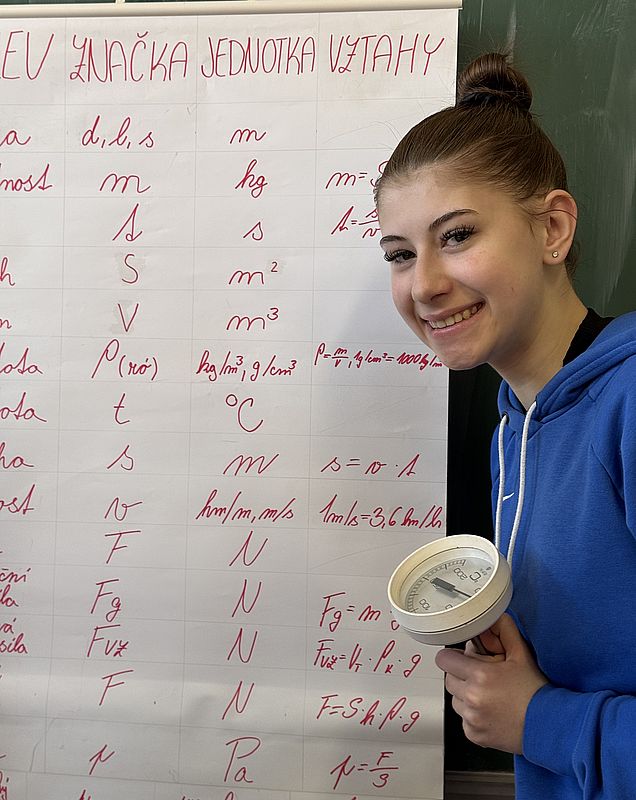 EV ZNAČKA JEDNOTKA VZTAHY
a d, l, s m
nost m kg m=
t s t=s/v
h S m²
m V m³
ota ρ(ró) kg/m³, g/cm³ ρ=m/V, 1g/cm³=1000kg/m
ota t °C
ha s m s=v·t
ost v km/m, m/s 1m/s=3,6 km/h
F N
ční
íla Fg N Fg=m·g
vá
síla Fvz N Fvz=Vt·ρk·g
F N F=S·h·ρ·g
p Pa p=F/S
100 200 °C